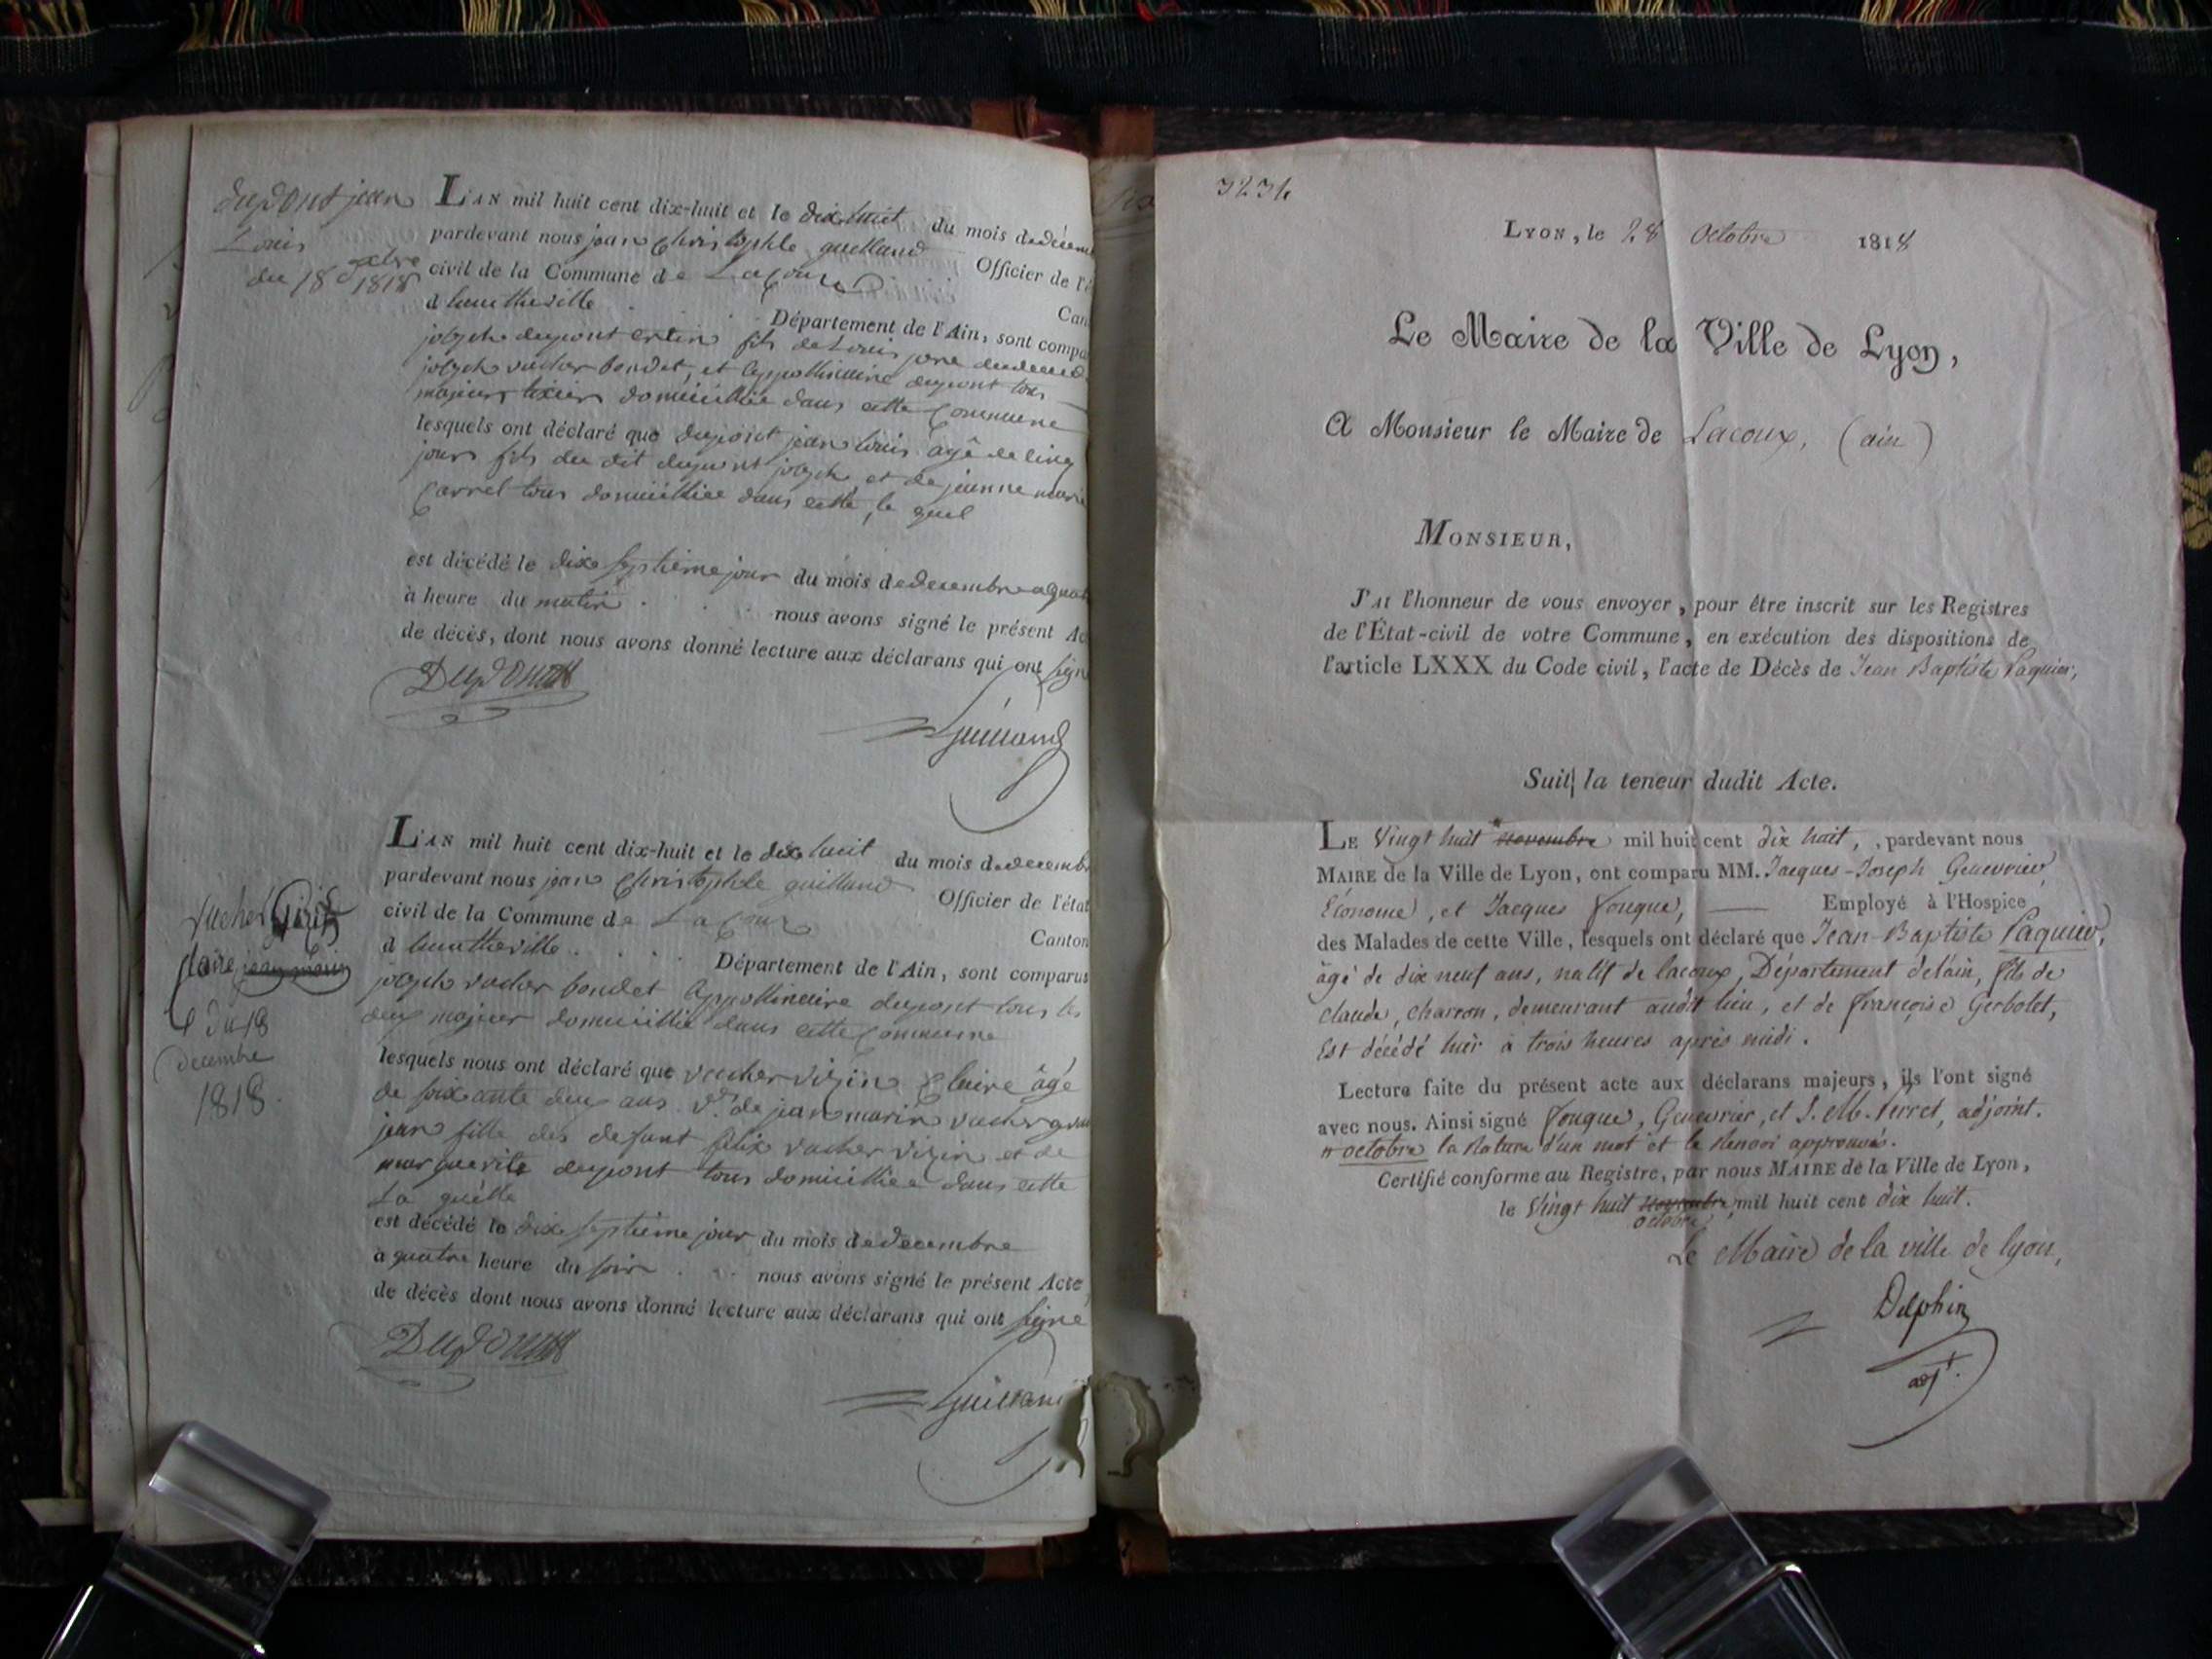 dupont jean
Louis
du 18 xbre
1818
L'AN mil huit cent dix-huit et le dix huit du mois de décem
pardevant nous jean Christophle guilland Officier de l'é
civil de la Commune de Lacoux Can
d'hauteville Département de l'Ain, sont compa
joseph dupont fils de Louis
joseph vucher bondet, et Appollinaire dupont tous
majeurs domicillié dans cette Commune
lesquels ont déclaré que dupont jean louis âgé de cinq
jours fils du dit dupont joseph et de jeanne marie
Carrel tous domicillié dans cette, le quel
est décédé le dix septième jour du mois de decembre a quat
à heure du matin nous avons signé le présent Ac
de décès, dont nous avons donné lecture aux déclarans qui ont sign
Dupont
Guilland
vucher
Claire jean marin
du 18
decembre
1818.
L'AN mil huit cent dix-huit et le dix huit du mois de decemb
pardevant nous jean Christophle guilland Officier de l'état
civil de la Commune de Lacoux Canton
d'hauteville Département de l'Ain, sont comparus
joseph vucher bondet Appollinaire dupont tous les
deux majeur domicillié dans cette Commune
lesquels nous ont déclaré que vucher vizin Claire âgé
de soixante deux ans vve de jean marin vucher
jean fille des defunt félix vucher vizin et de
marguerite dupont tous domicillié dans cette
La quelle
est décédé le dix septième jour du mois de decembre
à quatre heure du soir nous avons signé le présent Acte
de décès dont nous avons donné lecture aux déclarans qui ont signé
Dupont
Guilland
3234
LYON, le 28 Octobre 1818
Le Maire de la Ville de Lyon,
A Monsieur le Maire de Lacoux, (ain)
MONSIEUR,
J'AI l'honneur de vous envoyer, pour être inscrit sur les Registres
de l'État-civil de votre Commune, en exécution des dispositions de
l'article LXXX du Code civil, l'acte de Décès de Jean Baptiste Paquier,
Suit la teneur dudit Acte.
LE Vingt huit novembre mil huit cent dix huit, pardevant nous
MAIRE de la Ville de Lyon, ont comparu MM. Jacques-Joseph Genevrier,
Économe, et Jacques Fouque, Employé à l'Hospice
des Malades de cette Ville, lesquels ont déclaré que Jean-Baptiste Paquier,
âgé de dix neuf ans, natif de lacoux, Département de lain, fils de
Claude, charron, demeurant audit lieu, et de françoise Gerbolet,
Est décédé hier à trois heures après midi.
Lecture faite du présent acte aux déclarans majeurs, ils l'ont signé
avec nous. Ainsi signé Fouque, Genevrier, et J. M. Perret, adjoint.
octobre la Rature d'un mot et le Renvoi approuvés.
Certifié conforme au Registre, par nous MAIRE de la Ville de Lyon,
le Vingt huit novembre mil huit cent dix huit.
octobre
Le Maire de la ville de lyon,
Delphin
adjt.